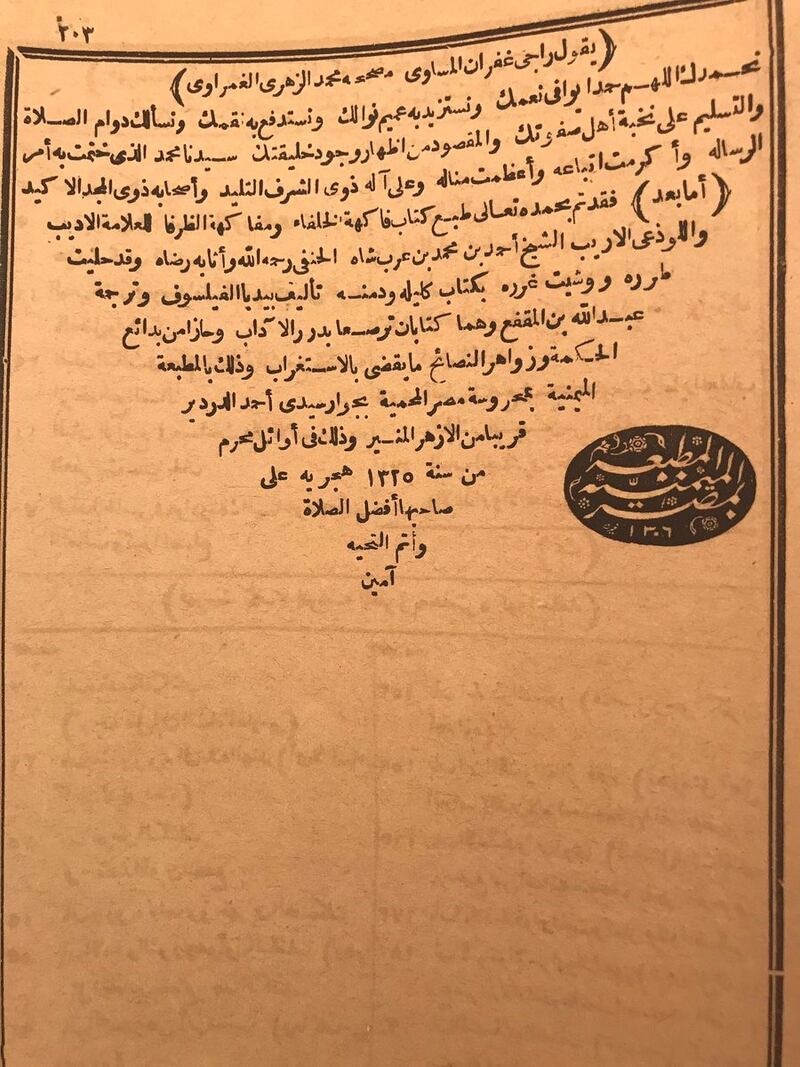 ٢٠٣
﴿يقول راجى غفران المساوى مصححه محمد الزهرى الغمراوى﴾
نحمدك اللهم حمدا يوافى نعمك ونستزيد به عميم نوالك ونستدفع به نقمك ونسألك دوام الصلاة
والتسليم على نخبة أهل صفوتك والمقصود من اظهار وجود خليقتك سيدنا محمد الذى ختمت به أمر
الرساله وأكرمت اتباعه وأعظمت مناله وعلى آله ذوى الشرف التليد وأصحابه ذوى المجد الاكيد
﴿أما بعد﴾ فقد تم بحمده تعالى طبع كتاب فاكهة الخلفاء ومفاكهة الظرفا للعلامة الاديب
واللوذعى الاريب الشيخ أحمد بن محمد بن عرب شاه الحنفى رحمه الله وأثابه رضاه وقد حليت
طرره ووشيت غرره بكتاب كليله ودمنه تأليف بيدبا الفيلسوف وترجمة
عبد الله بن المقفع وهما كتابان ترصعا بدرر الآداب وحازا من بدائع
الحكمة وزواهر النصائح ما يقضى بالاستغراب وذلك بالمطبعة
الميمنية بمحروسة مصر المحمية بجوار سيدى أحمد الدردير
قريبا من الازهر المنير وذلك فى أوائل محرم
من سنة ١٣٢٥ هجريه على
صاحبها أفضل الصلاة
وأتم التحيه
آمين
المطبعة
الميمنية
بمصر
١٣٠٦